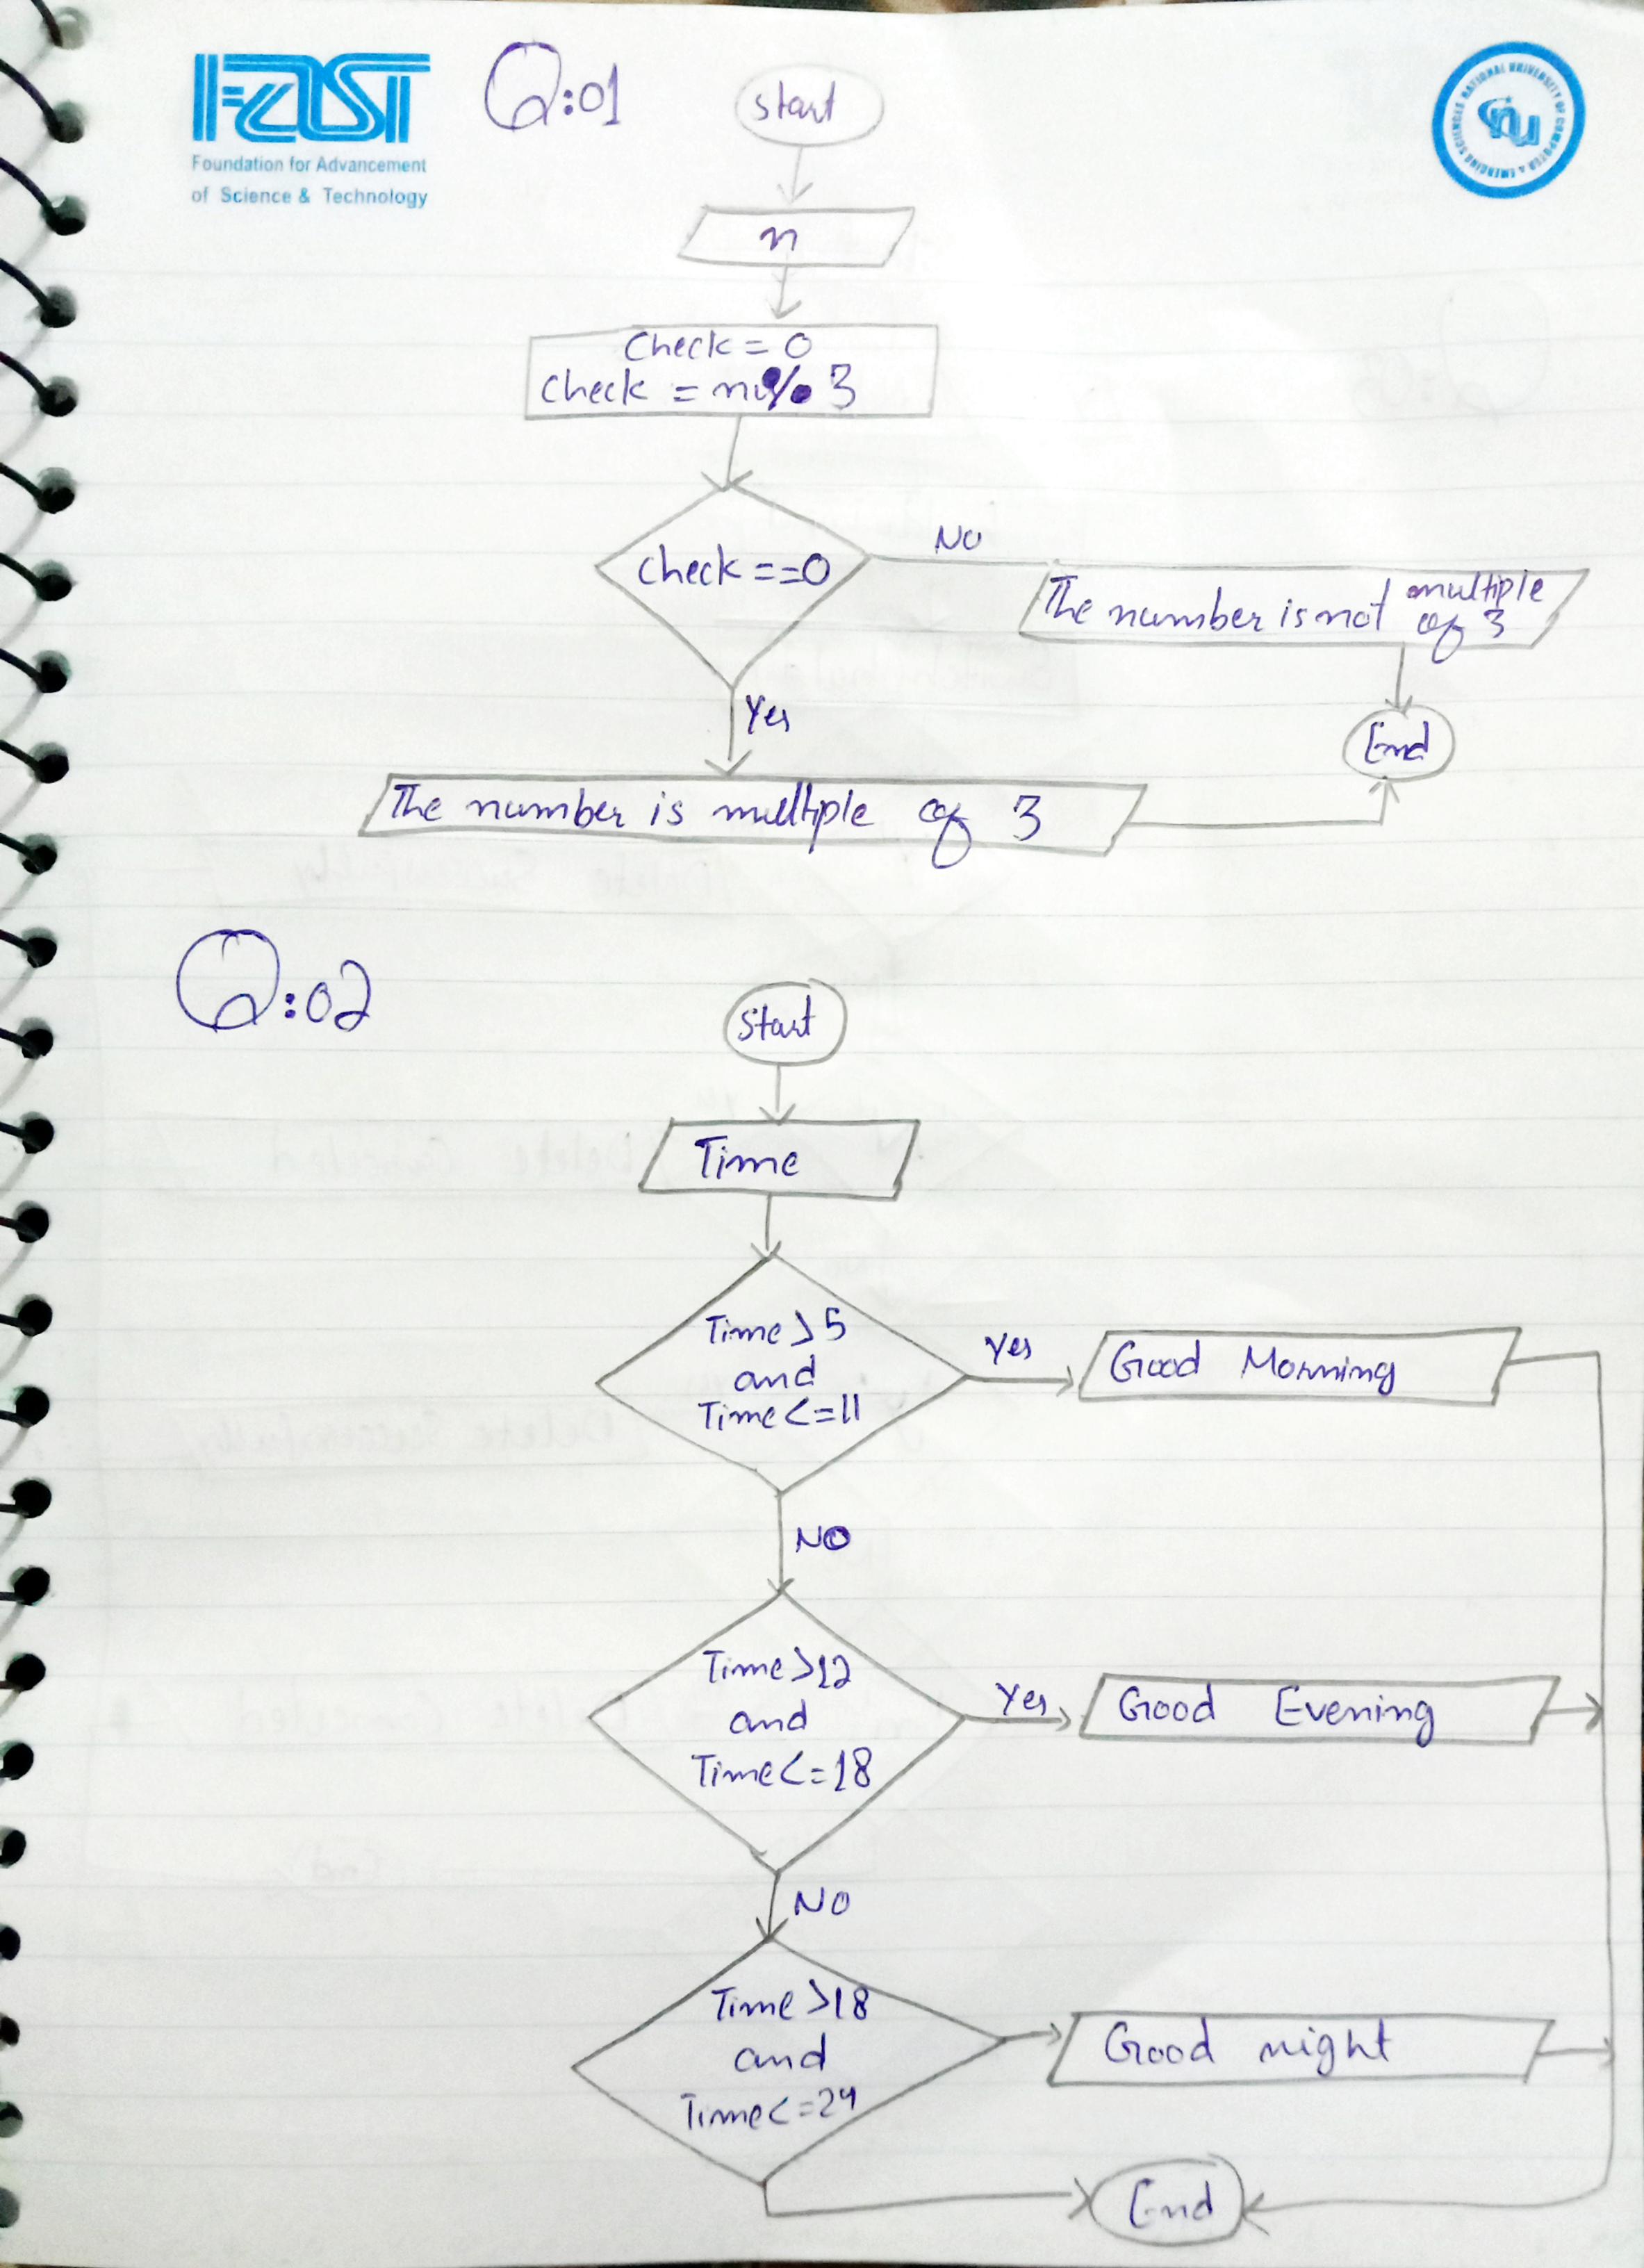 FAST
Foundation for Advancement
of Science & Technology
NATIONAL UNIVERSITY OF COMPUTER & EMERGING SCIENCES
nu
Q:01
Start
n
Check = 0
Check = n % 3
Check == 0
No
The number is not multiple
of 3
Yes
End
The number is multiple of 3
Q:02
Start
Time
Time > 5
and
Time <= 11
Yes
Good Morning
NO
Time > 12
and
Time <= 18
Yes
Good Evening
NO
Time > 18
and
Time <= 24
Good night
End